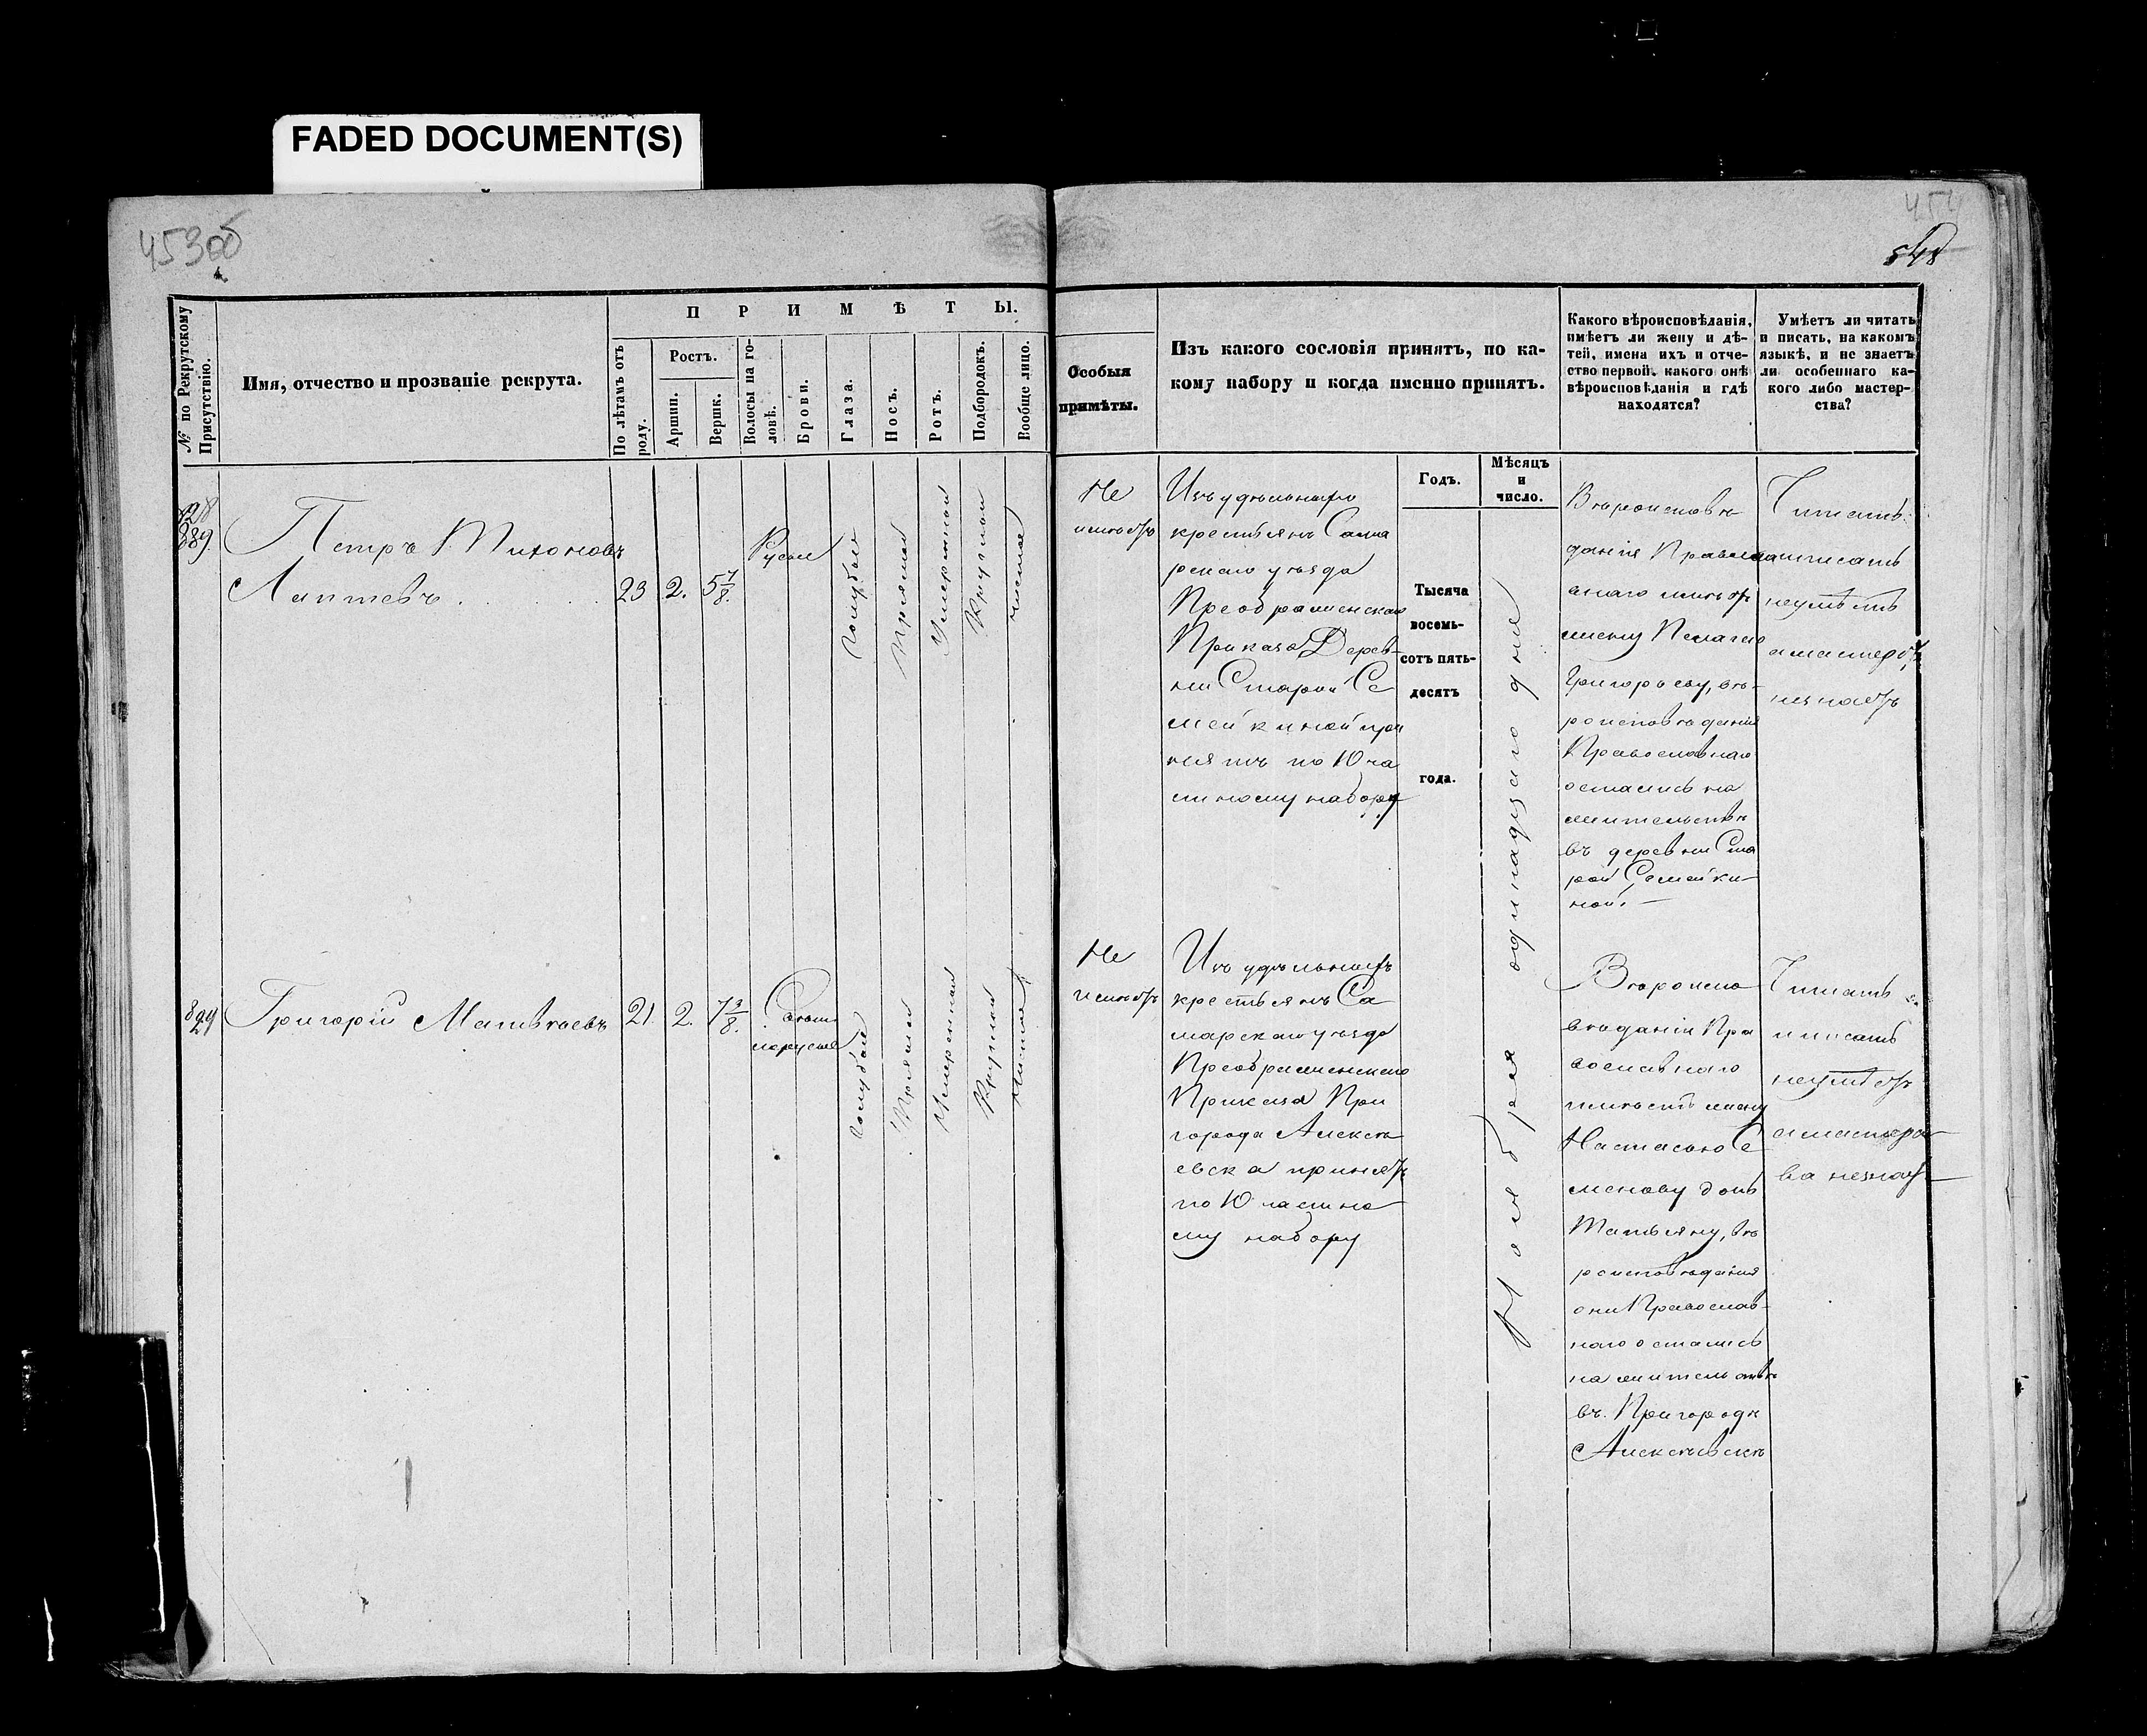 FADED DOCUMENT(S)
453об
454
№ по Рекрутскому Присутствію.
Имя, отчество и прозваніе рекрута.
ПРИМѢТЫ.
По лѣтамъ отъ роду.
Ростъ.
Аршин.
Вершк.
Волосы на головѣ.
Брови.
Глаза.
Носъ.
Ротъ.
Подбородокъ.
Вообще лицо.
Особыя
примѣты.
Изъ какого сословія принятъ, по ка-
кому набору и когда именно принятъ.
Какого вѣроисповѣданія,
имѣетъ ли жену и дѣ-
тей, имена ихъ и отче-
ство первой, какого онѣ
вѣроисповѣданія и гдѣ
находятся?
Умѣетъ ли читать
и писать, на какомъ
языкѣ, и не знаетъ
ли особеннаго ка-
кого либо мастер-
ства?
Годъ.
Мѣсяцъ
и
число.
Тысяча
восемь-
сотъ пять-
десятъ
года.
Ноября одинадцаго дня
828
889.
Петръ Тихоновъ
Лаптевъ
23
2.
5 7/8.
Русые
голубые
Прямой
Умеренной
Круглой
чистое
Не
имеетъ
Изъ удельныхъ
крестьянъ Сама
рскаго уезда
Преображенскаго
Приказа Дерев-
ни Старой Се
мейкиной при
нятъ по 10 ча
стному набору
Вероисповѣ
данія Правосл
авнаго имеетъ
жену Пелагею
Григорьеву, вѣ-
роисповѣданія
Православнаго
остались на
жительствѣ
въ деревни Ста
рой Семейки-
ной.
Читать
иписать
неумѣетъ
амастерст
незнаетъ
829
Григорій Матвѣевъ
21.
2.
7 3/8.
Светло
русые
голубые
Прямой
Умеренной
Круглой
чистое
Не
имеетъ
Изъ удельныхъ
крестьянъ Са
марскаго уезда
Преображенскаго
Приказа При
города Алексѣ
евска принятъ
по 10 частно
му набору
Вероиспо
вѣданія Пра
вославнаго
имѣетъ жену
Настасью Се
менову дочь
Татьяну, вѣ
роисповѣданія
они Православ-
наго остались
на жительствѣ
въ Пригородѣ
Алексѣевскѣ
Читать
иписать
неумѣетъ
амастерст
ва незнает